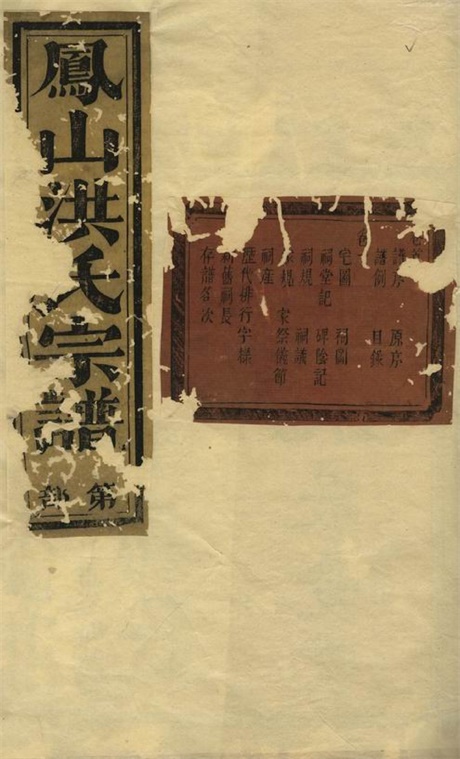 鳳山洪氏宗譜
第部
譜序 原序
譜例 目錄
卷
宅圖 祠圖
祠堂記 碑陰記
祠規 祠議
規 家祭儀節
祠產
歷代排行字樣
新舊祠長
存譜名次